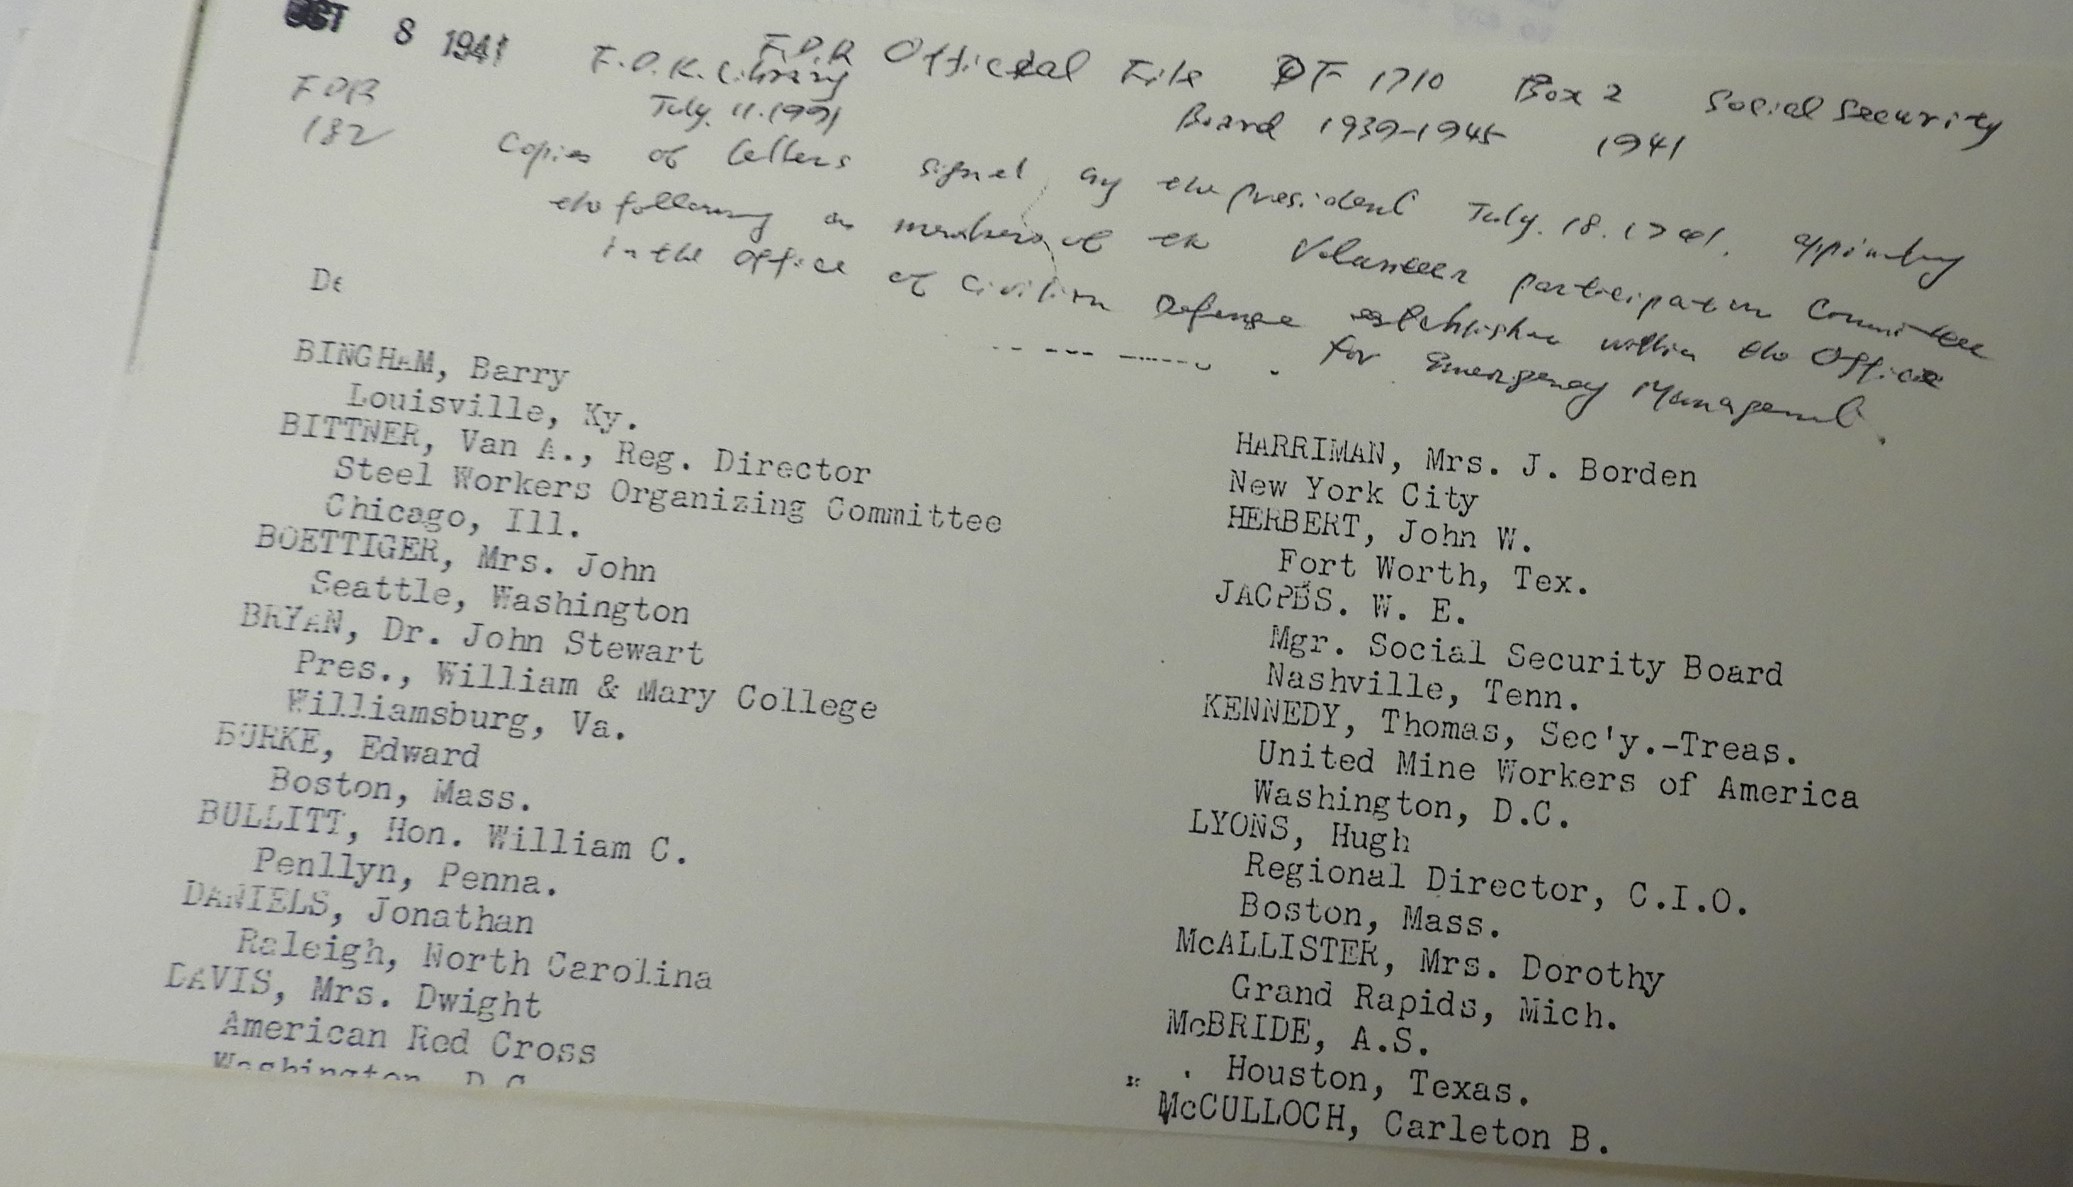 OCT 8 1941
F.D.R Official File OF 1710 Box 2 Social Security
F.D.R. Library
Board 1939-1945 1941
July. 11. 1991
FDR
182
Copies of letters signed by the president July. 18. 1941. appointing
the following as members of the Volunteer participation Committee
in the office of Civilian Defense established within the Office
for Emergency Management.
De
BINGHAM, Barry
Louisville, Ky.
BITTNER, Van A., Reg. Director
Steel Workers Organizing Committee
Chicago, Ill.
BOETTIGER, Mrs. John
Seattle, Washington
BRYAN, Dr. John Stewart
Pres., William & Mary College
Williamsburg, Va.
BURKE, Edward
Boston, Mass.
BULLITT, Hon. William C.
Penllyn, Penna.
DANIELS, Jonathan
Raleigh, North Carolina
DAVIS, Mrs. Dwight
American Red Cross
Washington, D.C.
HARRIMAN, Mrs. J. Borden
New York City
HERBERT, John W.
Fort Worth, Tex.
JACPBS. W. E.
Mgr. Social Security Board
Nashville, Tenn.
KENNEDY, Thomas, Sec'y.-Treas.
United Mine Workers of America
Washington, D.C.
LYONS, Hugh
Regional Director, C.I.O.
Boston, Mass.
McALLISTER, Mrs. Dorothy
Grand Rapids, Mich.
McBRIDE, A.S.
Houston, Texas.
McCULLOCH, Carleton B.